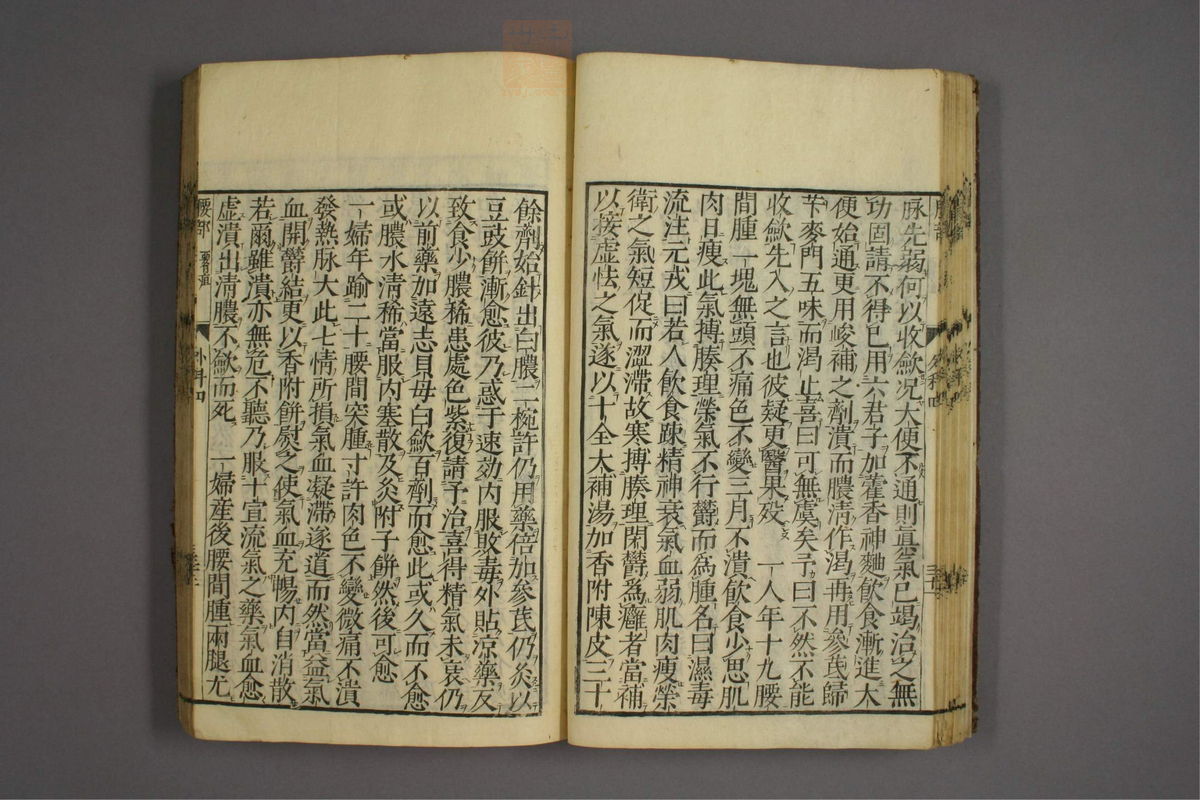 脉先弱何以收歛况大便不通則眞氣已竭治之無
功固請不得已用六君子加藿香神麯飲食漸進大
便始通更用峻補之劑潰而膿淸作渴再用參芪歸
芐麥門五味而渴止喜曰可無虞矣予曰不然不能
收歛先入之言也彼疑更醫果殁　一人年十九腰
間腫一塊無頭不痛色不變三月不潰飲食少思肌
肉日瘦此氣搏腠理榮氣不行欝而爲腫名曰濕毒
流注元戎曰若人飲食疎精神衰氣血弱肌肉瘦榮
衛之氣短促而澀滯故寒搏腠理閉欝爲癰者當補
以接虛怯之氣遂以十全大補湯加香附陳皮三十
餘劑始針出白膿二椀許仍用藥倍加參芪仍灸以
豆豉餅漸愈彼乃惑于速効内服敗毒外貼凉藥反
致食少膿稀患處色紫復請予治喜得精氣未衰仍
以前藥加遠志貝毋白歛百劑而愈此或久而不愈
或膿水清稀當服内塞散及灸附子餅然後可愈
一婦年踰二十腰間突腫寸許肉色不變微痛不潰
發熱脉大此七情所損氣血凝滯遂道而然當益氣
血開欝結更以香附餅熨之使氣血充暢内自消散
若爾雖潰亦無危不聽乃服十宣流氣之藥氣血愈
虛潰出淸膿不歛而死　一婦産後腰間腫兩腿尤
腰部
外科四